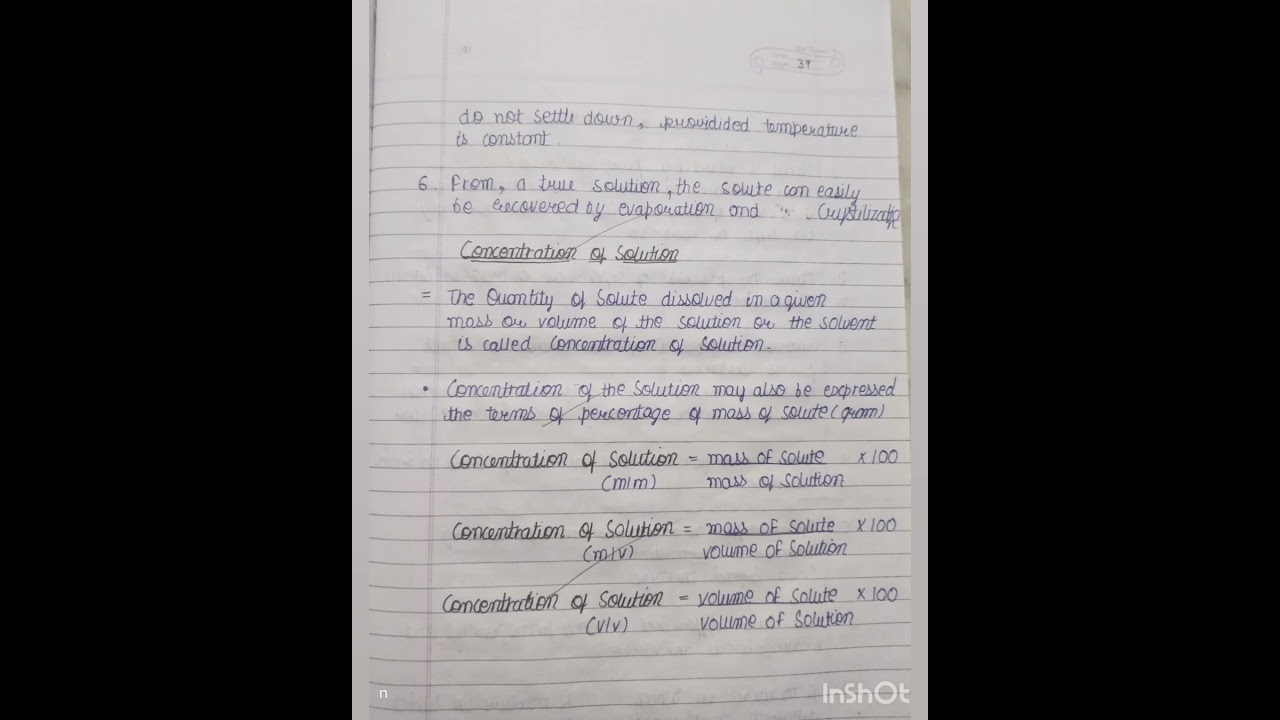 39
do not settle down, providided temperature
is constant.
6. From, a true solution, the solute can easily
be recovered by evaporation and Crystilization
Concentration of Solution
= The Quantity of Solute dissolved in a given
mass or volume of the solution or the solvent
is called Concentration of Solution.
• Concentration of the Solution may also be expressed
the terms of percentage of mass of solute (gram)
Concentration of Solution = mass of solute × 100
(m/m) mass of Solution
Concentration of Solution = mass of Solute × 100
(m/v) volume of Solution
Concentration of Solution = volume of Solute × 100
(v/v) volume of Solution
n
InShOt